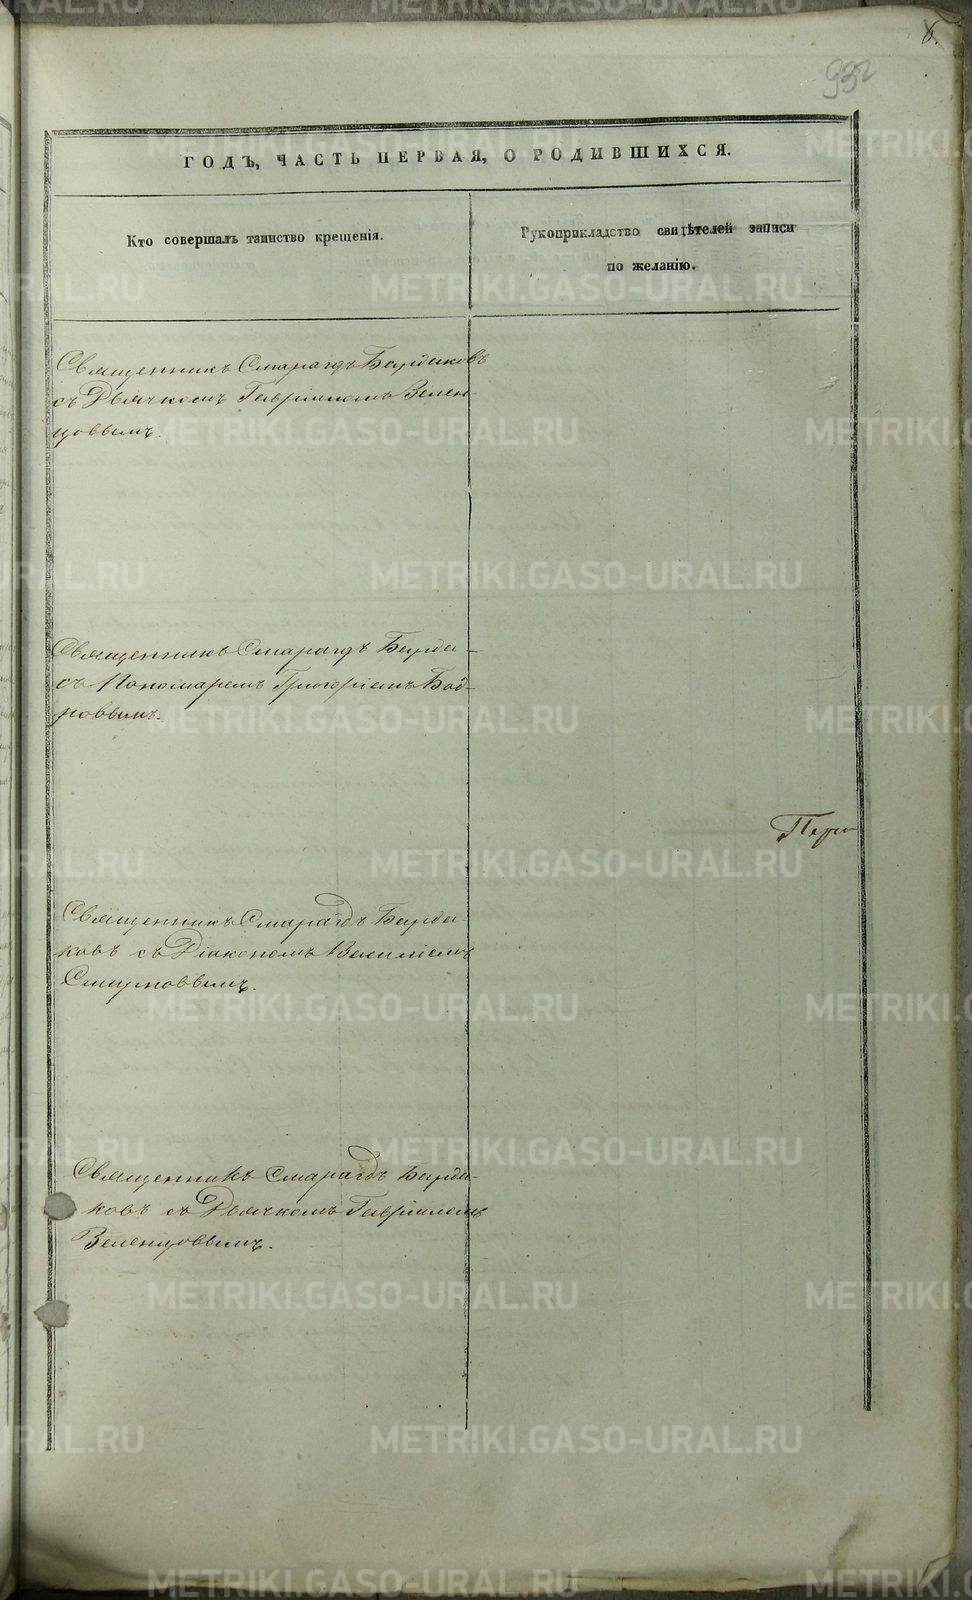 6.
932
ГОДЪ, ЧАСТЬ ПЕРВАЯ, О РОДЫВШИХСЯ.
Кто совершалъ таинство крещенія.
Рукоприкладство свидѣтелей записи
по желанію.
Священникъ Смарагдъ Бардаковъ
съ Дьячкомъ Гавріиломъ Зелен-
цовымъ.
Священникъ Смарагдъ Барда-
съ Пономаремъ Григоріемъ Бод-
ровымъ.
Пер
Священникъ Смарагдъ Барда-
ковъ съ Діакономъ Василіемъ
Смирновымъ.
Священникъ Смарагдъ Барда-
ковъ съ Дьячкомъ Гавріиломъ
Зеленцовымъ.
METRIKI.GASO-URAL.RU